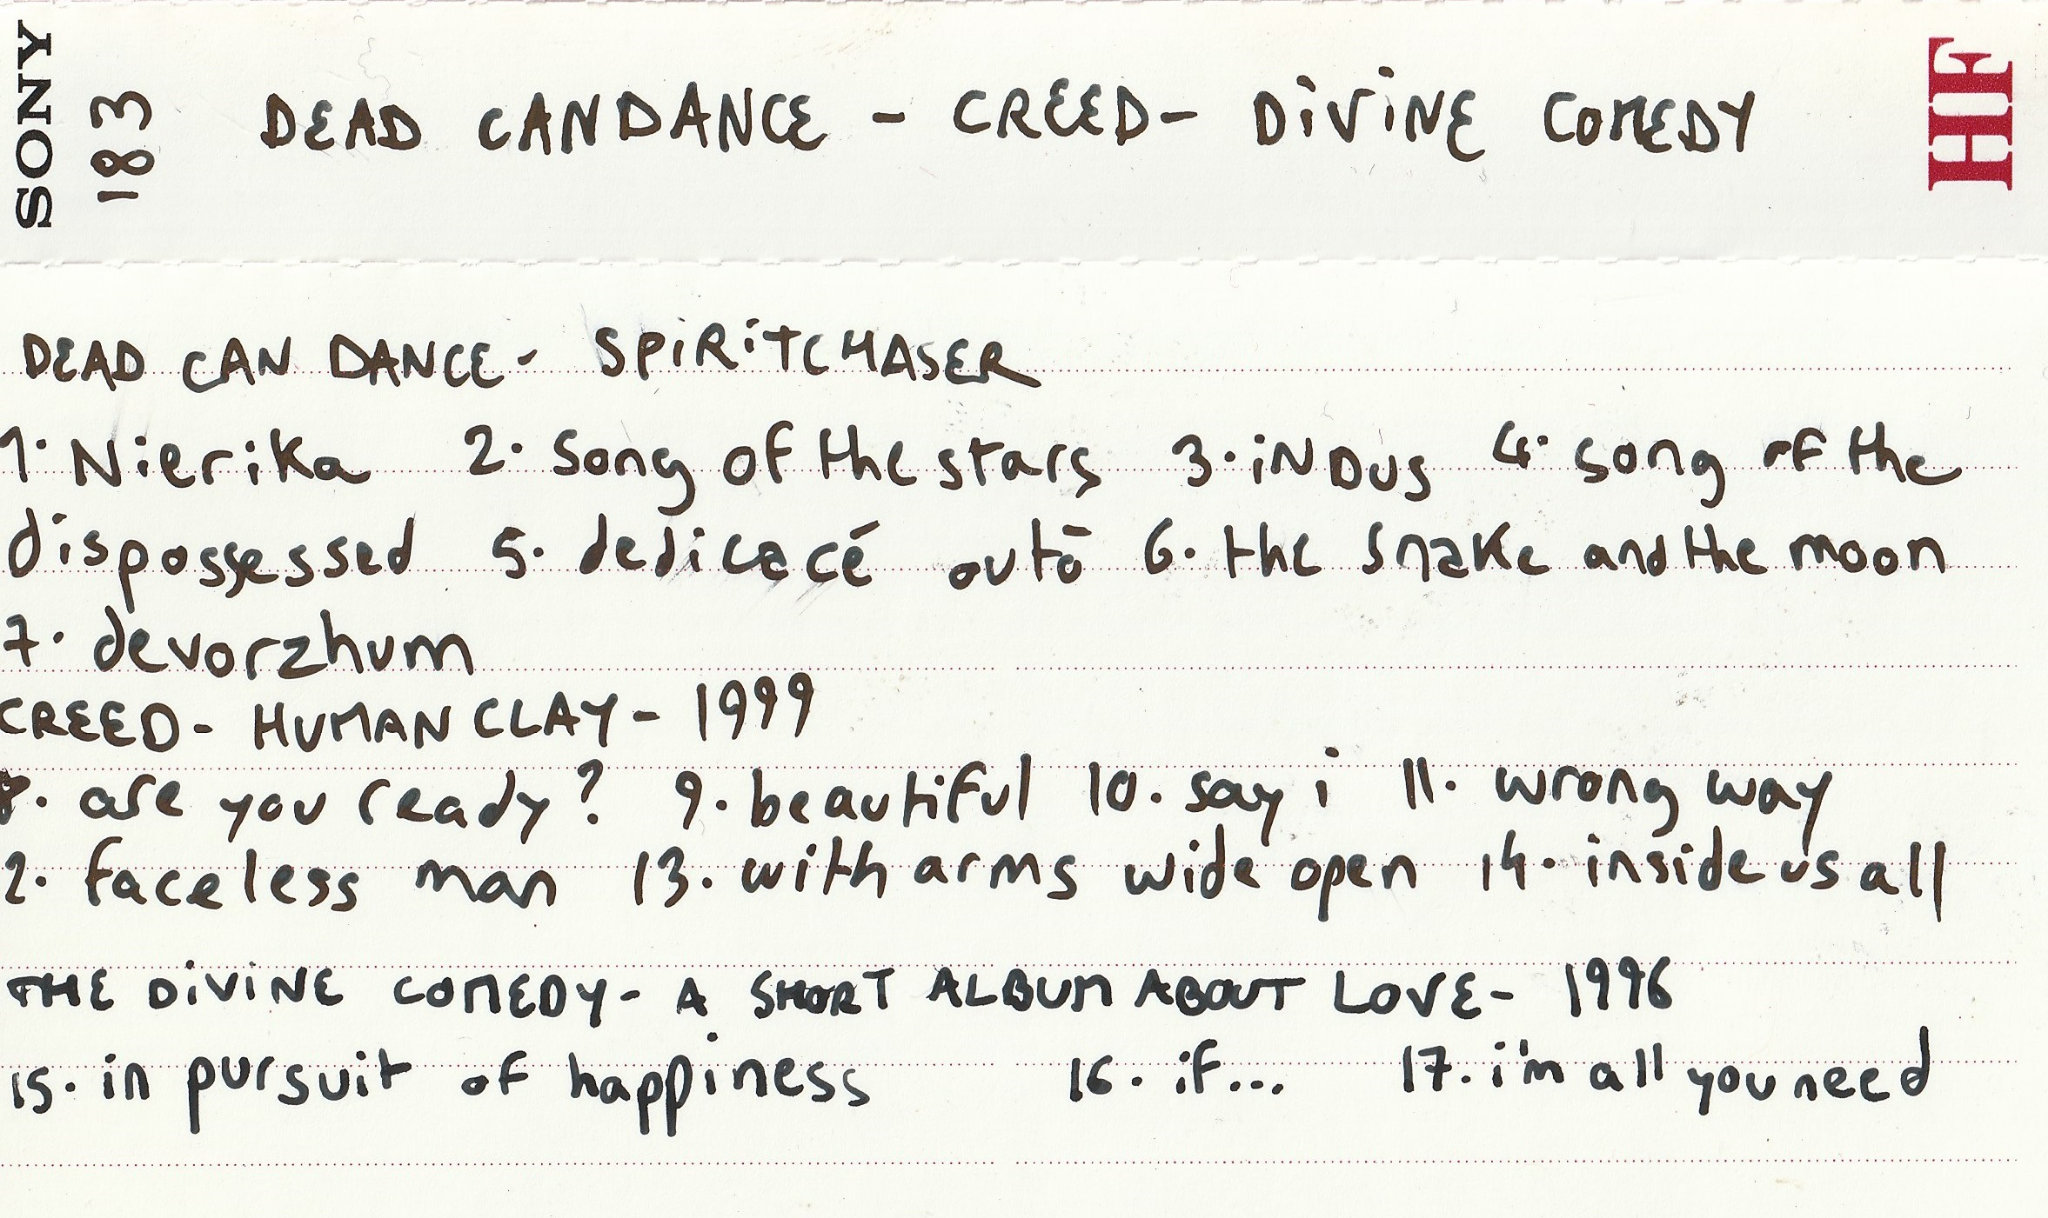 SONY
183
DEAD CANDANCE - CREED - DiViNE COMEDY
HF
DEAD CAN DANCE - SPiRiTCHASER
1. Nierika 2. song of the stars 3. iNDUS 4. song of the
dispossessed 5. dedicacé outō 6. the snake and the moon
7. devorzhum
CREED - HUMAN CLAY - 1999
8. are you ready? 9. beautiful 10. say i 11. wrong way
2. faceless man 13. with arms wide open 14. inside us all
THE DiViNE COMEDY - A SHORT ALBUM ABOUT LOVE - 1996
15. in pursuit of happiness 16. if... 17. i'm all you need